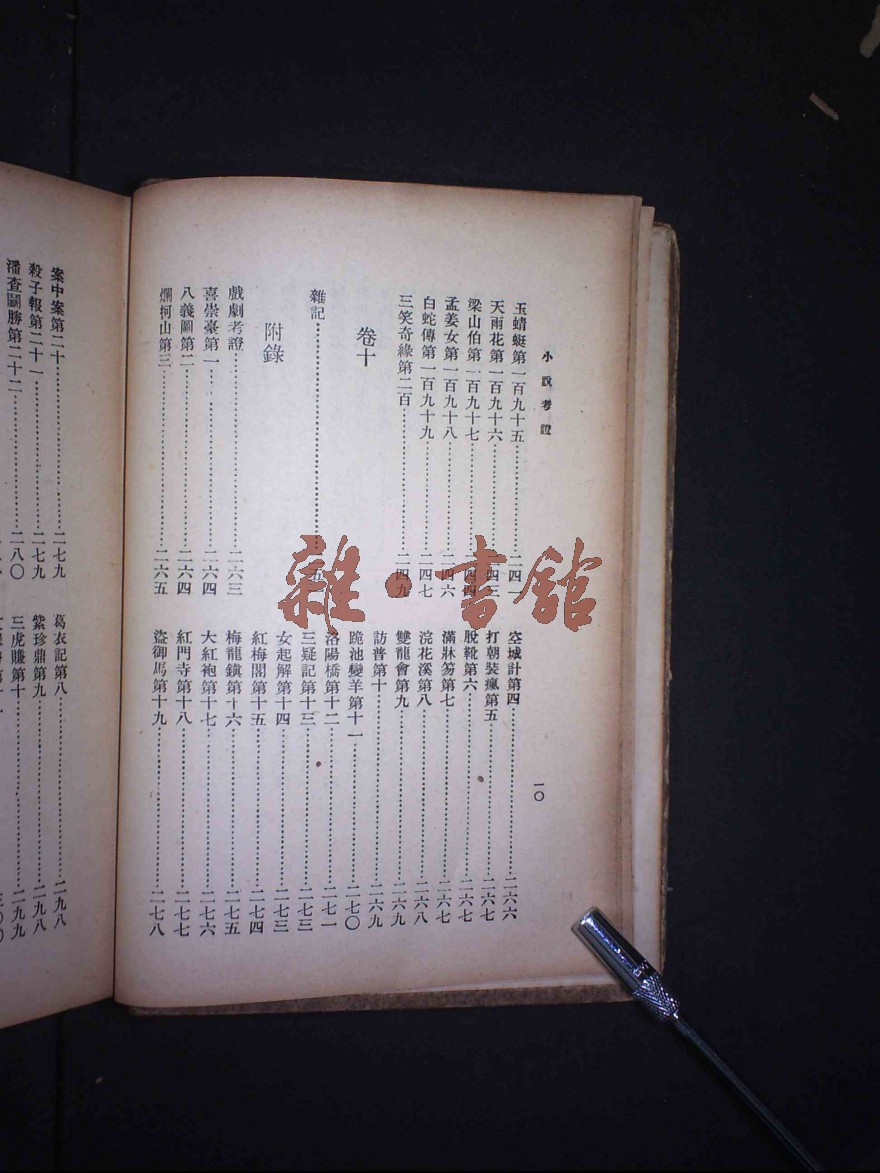 小說考證
玉蜻蜓第一百九十五……二四一
天雨花第一百九十六……二四三
梁山伯第一百九十七……二四四
孟姜女第一百九十八……二四六
白蛇傳第一百九十九……二四七
三笑奇緣第二百……二四九
卷十
雜記……五
附錄
戲劇考證……二六三
喜崇臺第一……二六四
八義圖第二……二六四
爛柯山第三……二六五
空城計第四……二六六
打朝裝瘋第五……二六七
脫靴第六……二六七
滿牀笏第七……二六七
浣花溪第八……二六八
雙龍會第九……二六九
訪普第十……二六九
跪池變羊第十一……二七〇
洛陽橋第十二……二七一
三疑記第十三……二七三
女起解第十四……二七三
紅梅閣第十五……二七四
梅龍鎮第十六……二七五
大紅袍第十七……二七六
紅門寺第十八……二七七
盜御馬第十九……二七八
一〇
案中案第二十……二七九
殺子報第二十一……二七九
潘查鬭勝第二十二……二八〇
葛衣記第八……二九八
紫珍鼎第九……二九八
三虎賺第十……二九九
三〇〇
雜·書館